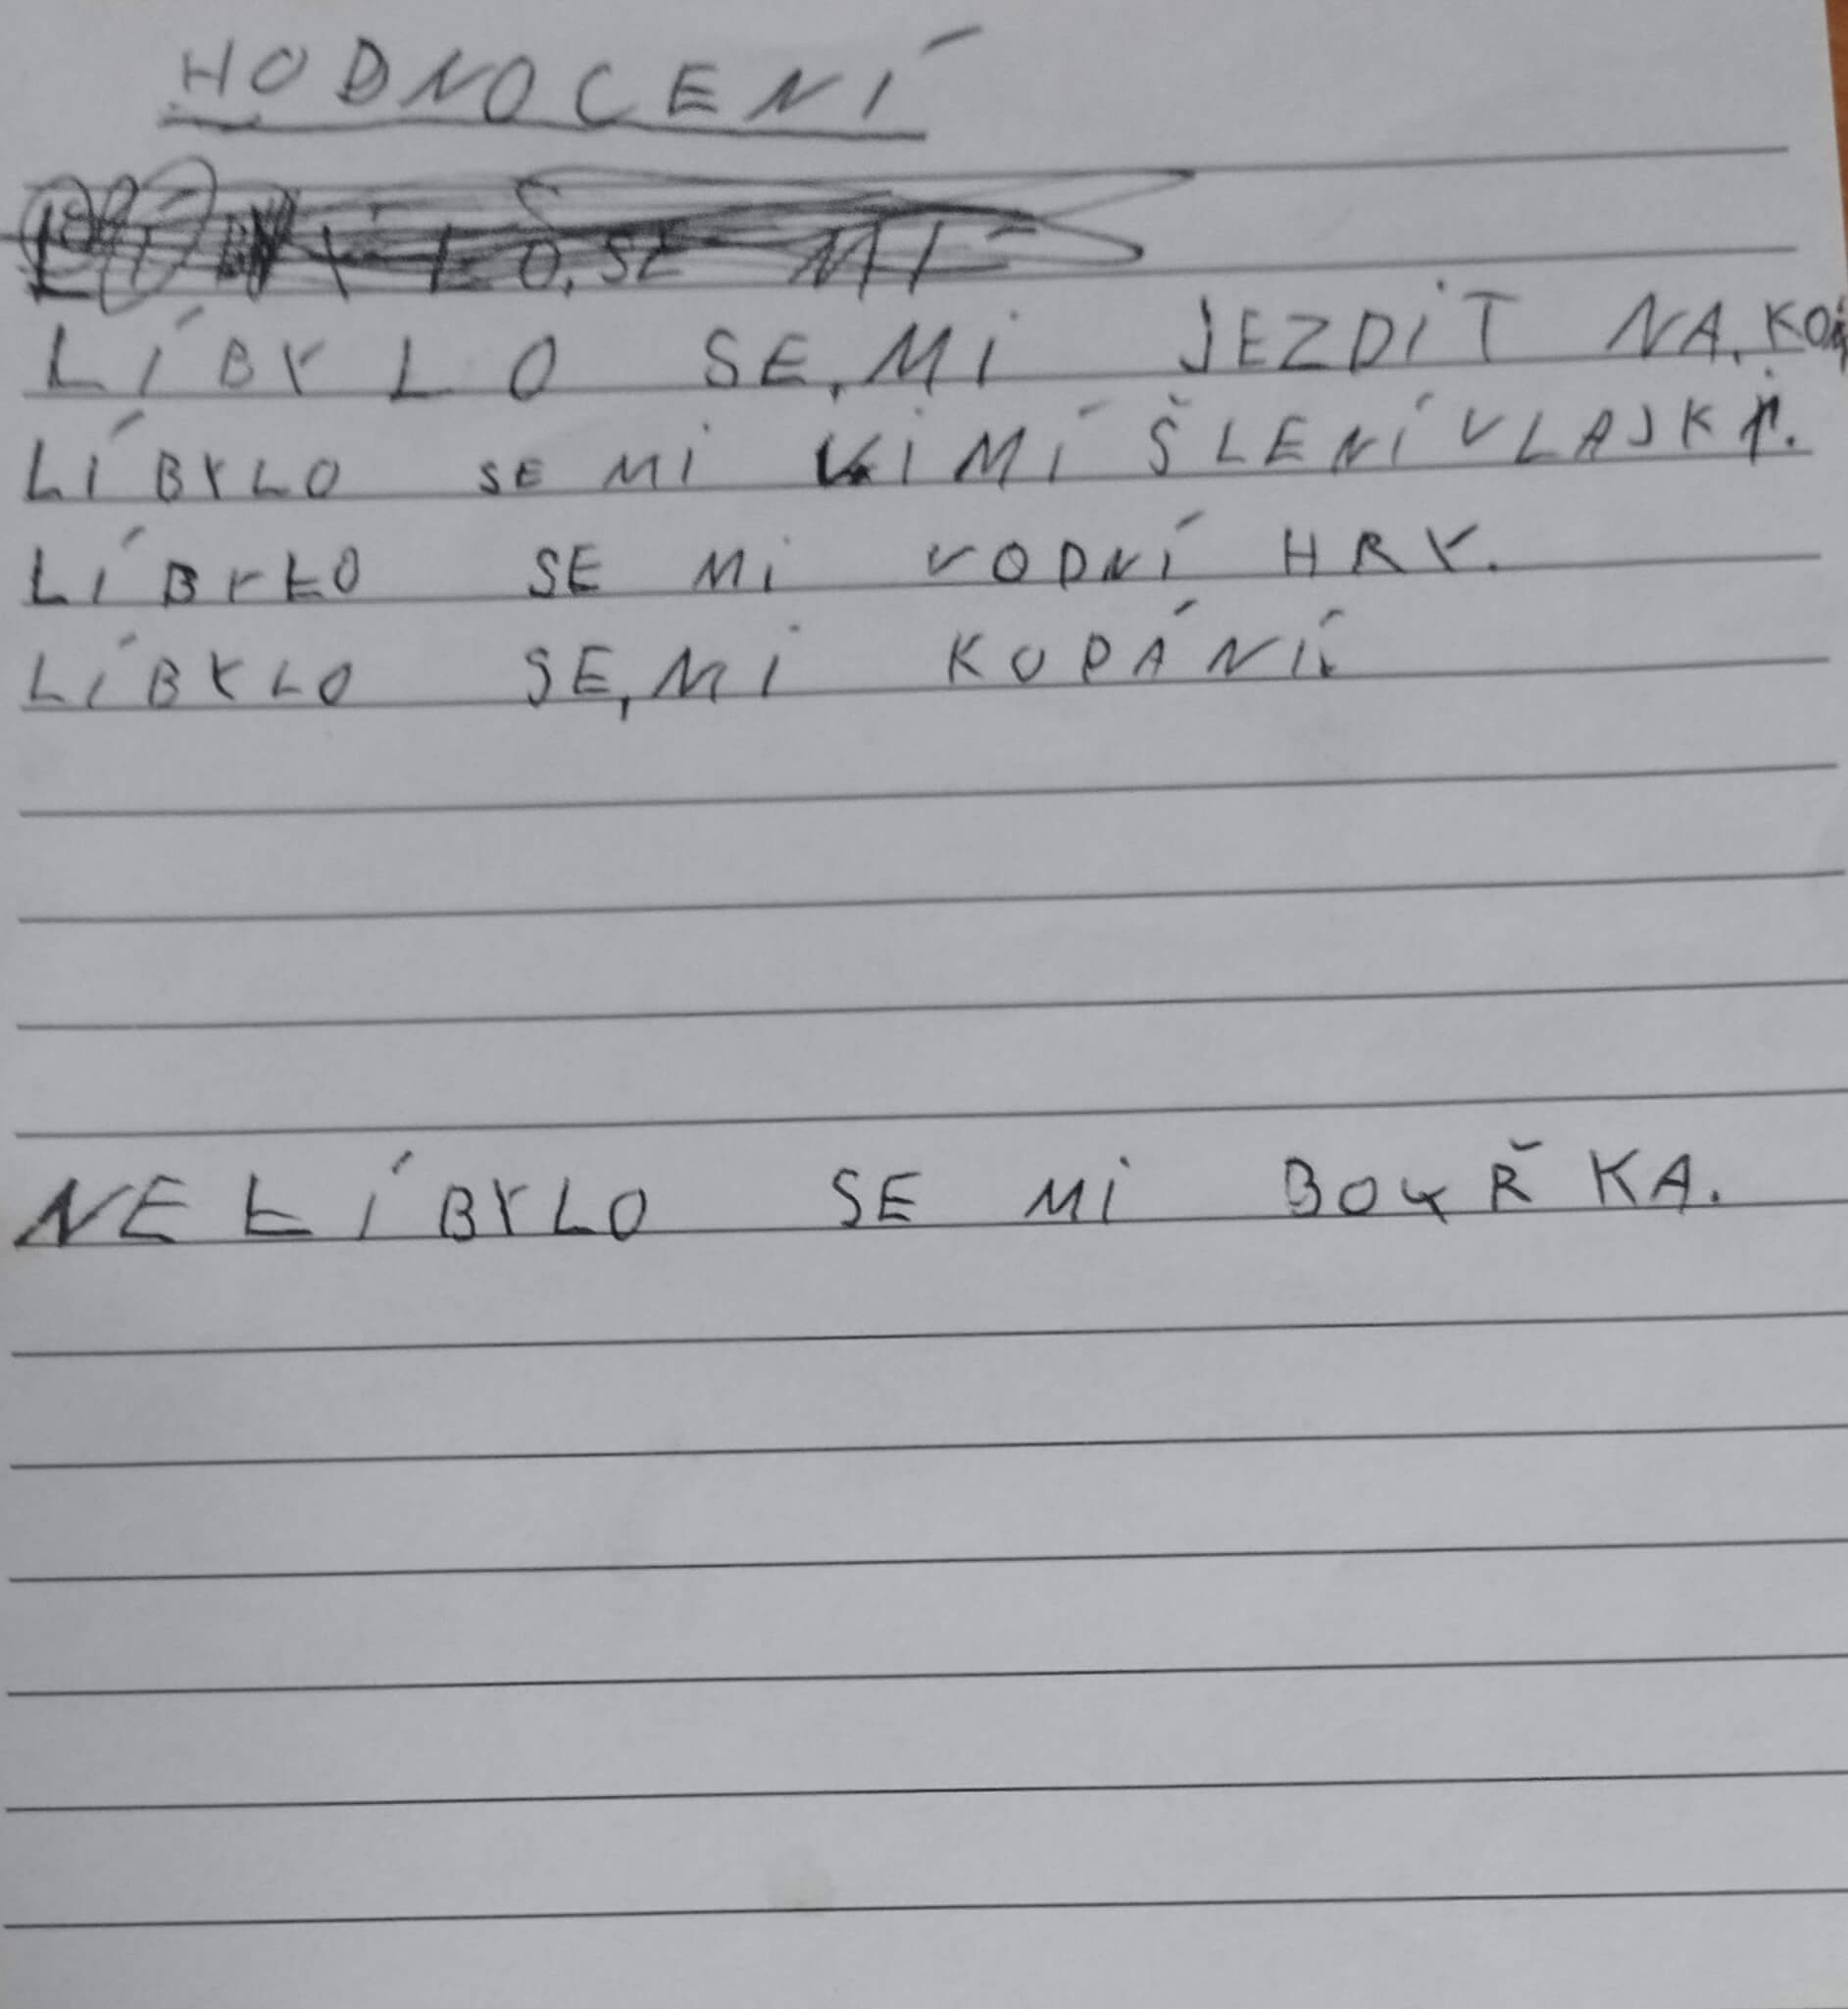 HODNOCENÍ
LÍBYLO SE, MI JEZDIT NA.
LÍBYLO SE MI VIMÍŠLENÍ VLAJKI.
LÍBYLO SE MI VODNÍ HRY.
LÍBYLO SE, MI KOPÁNÍ
NELÍBYLO SE MI BOUŘKA.